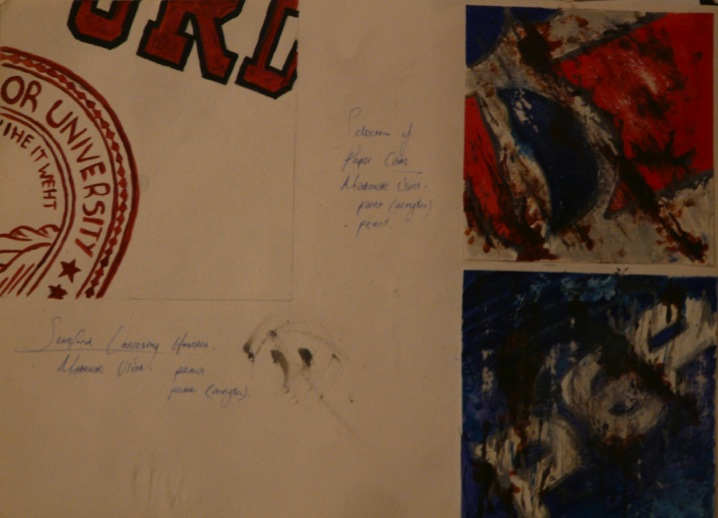 ORD
OR UNIVERSITY
IHE IT WEHT
Selection of
Paper Cans
Materials Used.
paint (acrylic)
- pencil.
University
Materials Used. pencil
paint (acrylic).